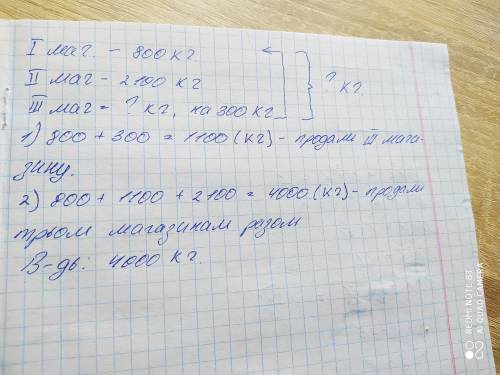 I маг. - 800 кг
II маг - 2100 кг
III маг = ? кг, на 300 кг
? кг
1) 800 + 300 = 1100 (кг) - продали III мага-
зину.
2) 800 + 1100 + 2100 = 4000 (кг) - продали
трьом магазинам разом
В-дь: 4000 кг.
REDMI NOTE 8T
AI QUAD CAMERA